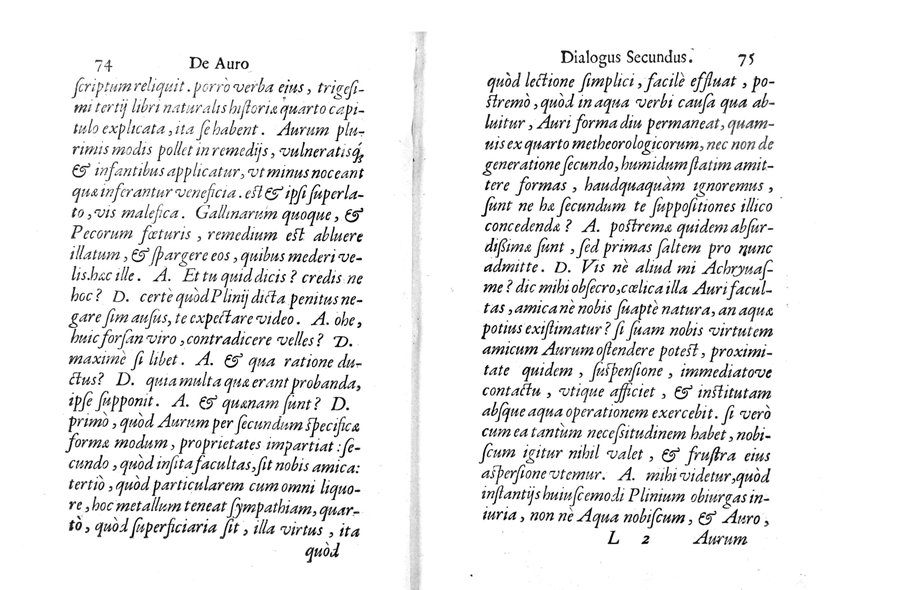 74 De Auro
ſcriptum reliquit. porrò verba eius, trigeſi-
mi tertij libri naturalis hiſtoriæ quarto capi-
tulo explicata, ita ſe habent. Aurum plu-
rimis modis pollet in remedijs, vulneratisq́;
& infantibus applicatur, vt minus noceant
quæ inferantur veneficia. eſt & ipſi ſuperla-
to, vis malefica. Gallinarum quoque, &
Pecorum fœturis, remedium eſt abluere
illatum, & ſpargere eos, quibus mederi ve-
lis. hæc ille. A. Et tu quid dicis? credis ne
hoc? D. certè quòd Plinij dicta penitus ne-
gare ſim auſus, te expectare video. A. ohe,
huic forſan viro, contradicere velles? D.
maximè ſi libet. A. & qua ratione du-
ctus? D. quia multa quæ erant probanda,
ipſe ſupponit. A. & quænam ſunt? D.
primò, quòd Aurum per ſecundum ſpecificæ
formæ modum, proprietates impartiat: ſe-
cundo, quòd inſita facultas, ſit nobis amica:
tertiò, quòd particularem cum omni liquo-
re, hoc metallum teneat ſympathiam, quar-
tò, quòd ſuperficiaria ſit, illa virtus, ita
quòd
Dialogus Secundus. 75
quòd lectione ſimplici, facilè effluat, po-
ſtremò, quòd in aqua verbi cauſa qua ab-
luitur, Auri forma diu permaneat, quam-
uis ex quarto metheorologicorum, nec non de
generatione ſecundo, humidum ſtatim amit-
tere formas, haudquaquàm ignoremus,
ſunt ne hæ ſecundum te ſuppoſitiones illico
concedendæ? A. poſtremæ quidem abſur-
dißimæ ſunt, ſed primas ſaltem pro nunc
admitte. D. Vis nè aliud mi Achryuaſ-
me? dic mihi obſecro, cœlica illa Auri facul-
tas, amica nè nobis ſuaptè natura, an aquæ
potius exiſtimatur? ſi ſuam nobis virtutem
amicum Aurum oſtendere poteſt, proximi-
tate quidem, ſuſpenſione, immediatove
contactu, vtique afficiet, & inſtitutam
abſque aqua operationem exercebit. ſi verò
cum ea tantùm neceſſitudinem habet, nobi-
ſcum igitur nihil valet, & fruſtra eius
aſperſione vtemur. A. mihi videtur, quòd
inſtantijs huiuſcemodi Plinium obiurgas in-
iuria, non nè Aqua nobiſcum, & Auro,
L 2 Aurum